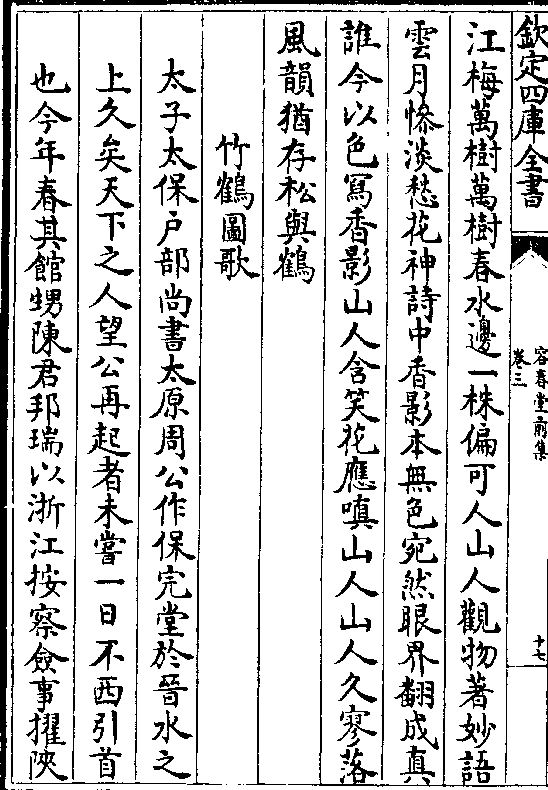 欽定四庫全書
容春堂前集
卷三
十七
江梅萬樹萬樹春水邊一株偏可人山人觀物著妙語
雲月慘淡愁花神詩中香影本無色宛然眼界翻成真
誰今以色寫香影山人含笑花應嗔山人山人久寥落
風韻猶存松與鶴
竹鶴圖歌
太子太保戶部尚書太原周公作保完堂於晉水之
上久矣天下之人望公再起者未嘗一日不西引首
也今年春其館甥陳君邦瑞以浙江按察僉事擢陝